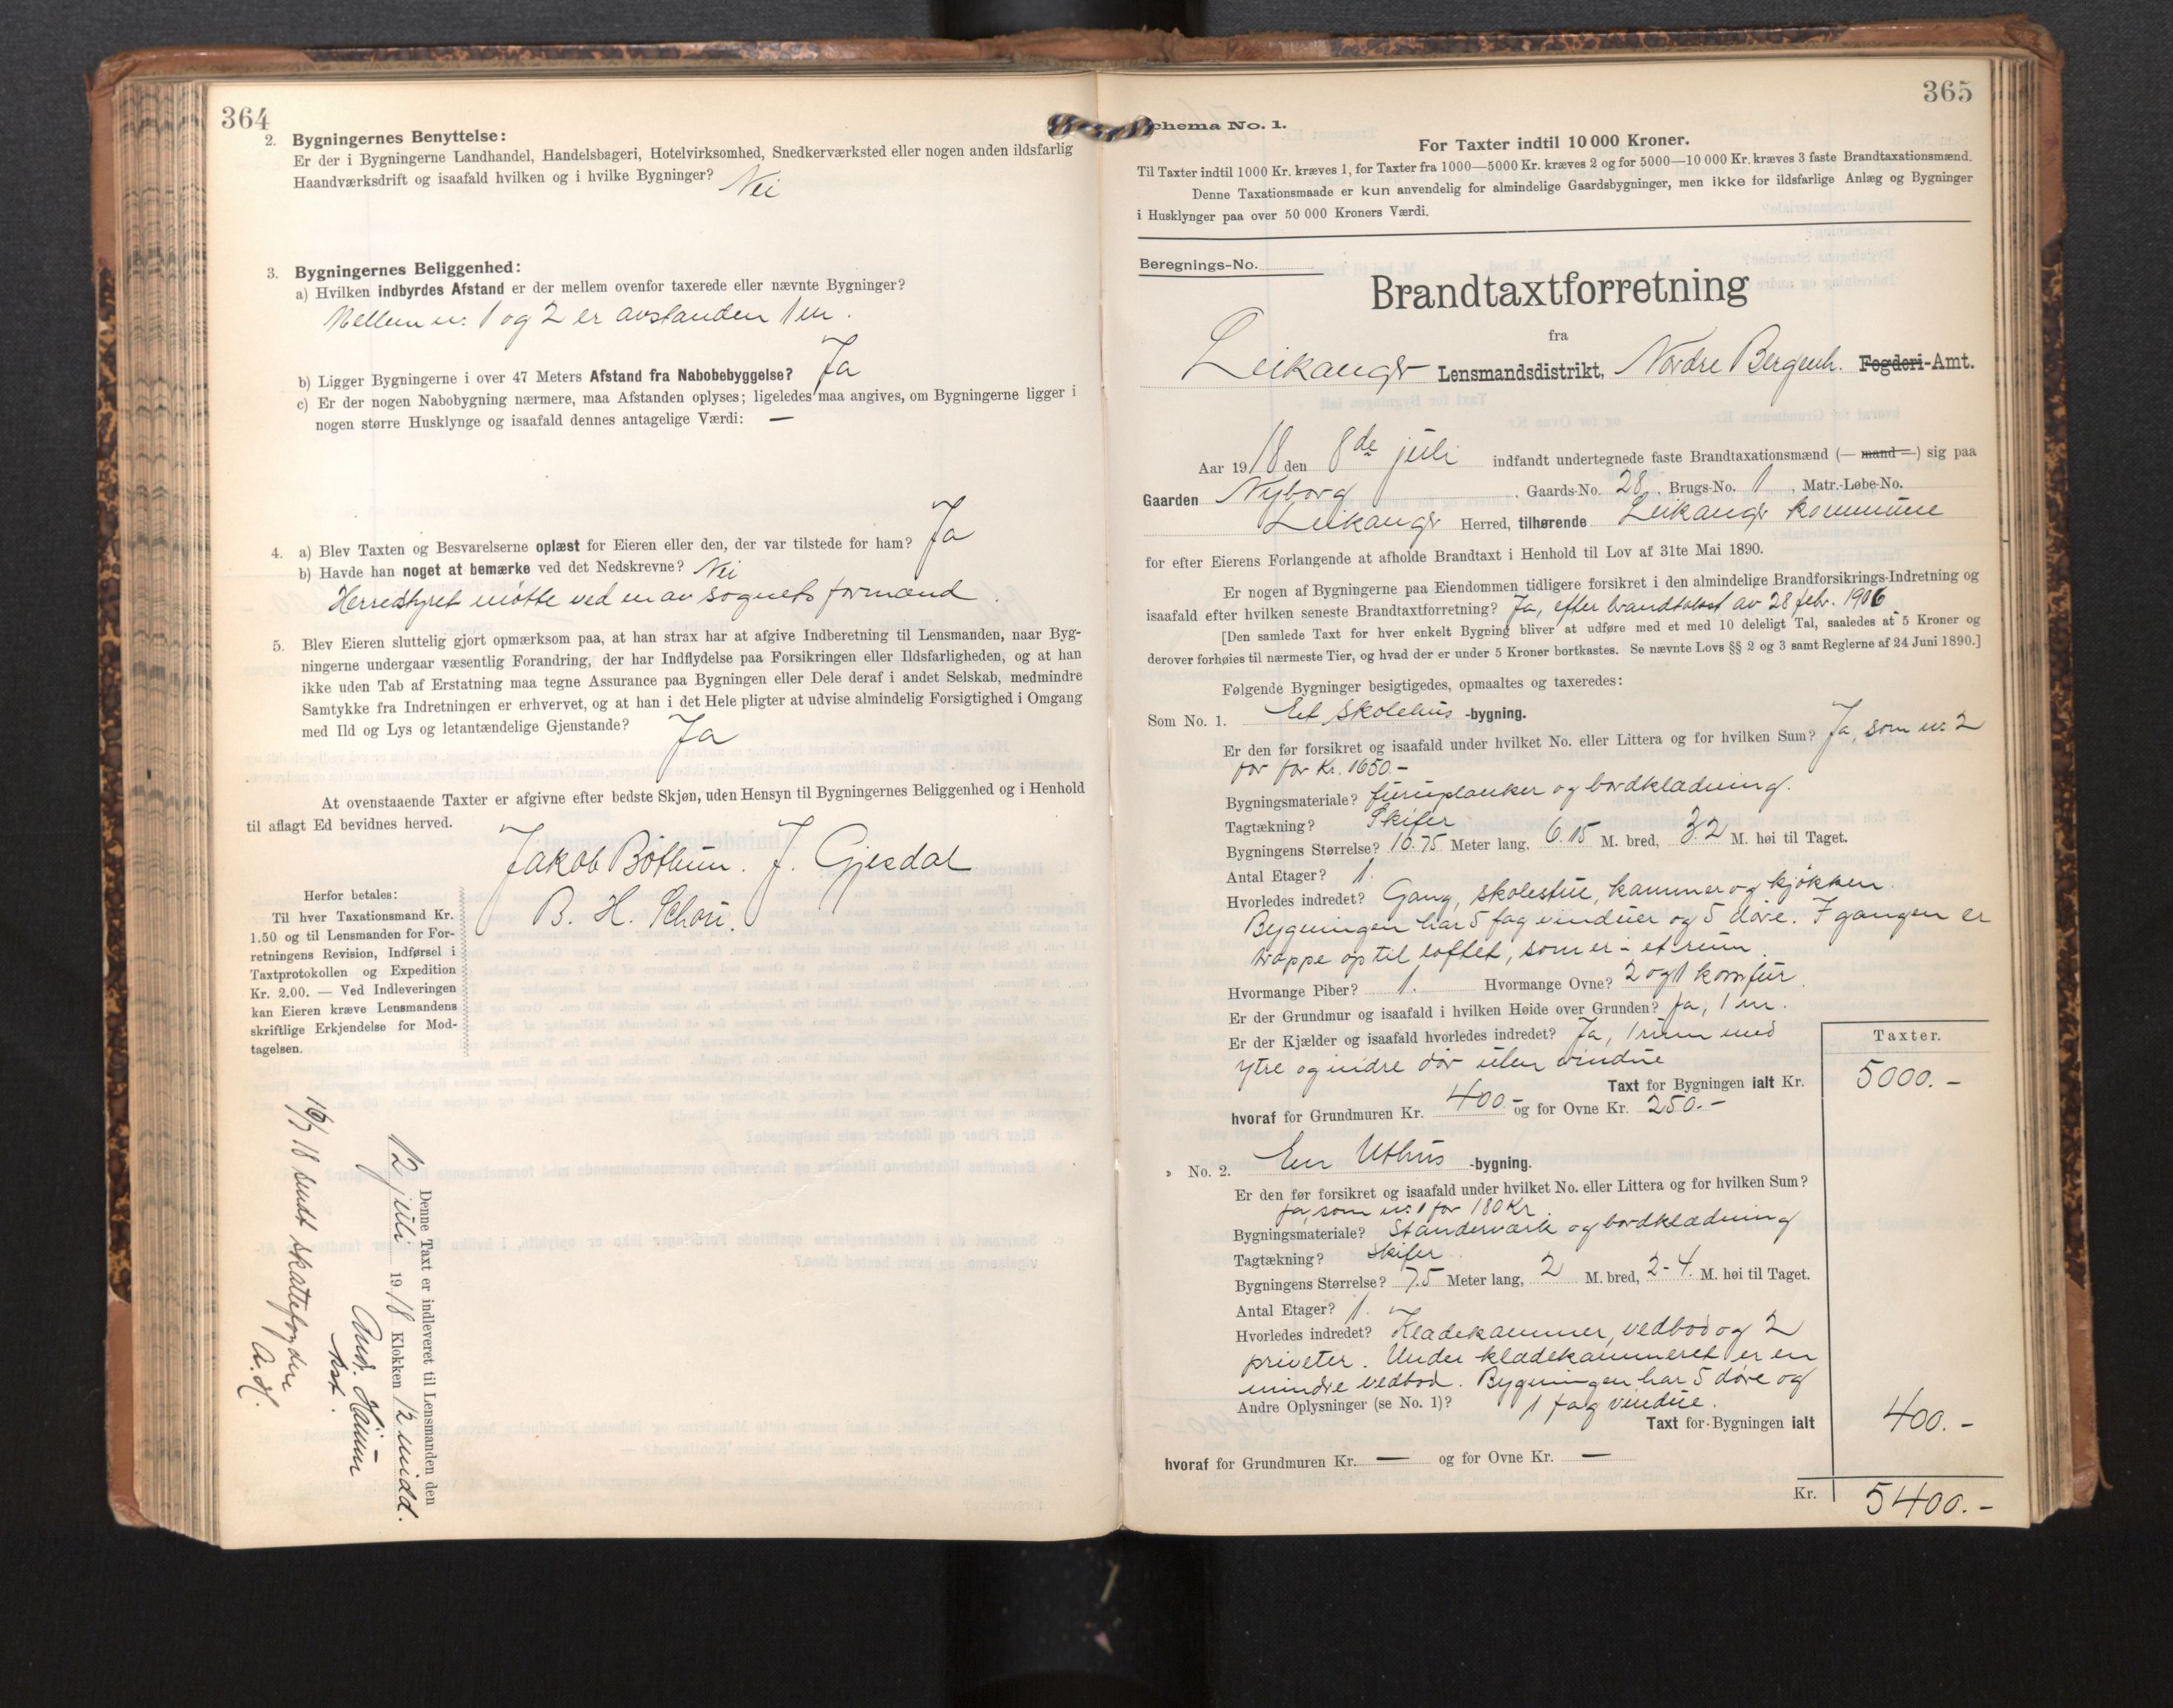 364
2. Bygningernes Benyttelse:
Er der i Bygningerne Landhandel, Handelsbageri, Hotelvirksomhed, Snedkerværksted eller nogen anden ildsfarlig
Haandværksdrift og isaafald hvilken og i hvilke Bygninger? Nei
3. Bygningernes Beliggenhed:
a) Hvilken indbyrdes Afstand er der mellem ovenfor taxerede eller nævnte Bygninger?
Mellem nr. 1 og 2 er avstanden 1 m.
b) Ligger Bygningerne i over 47 Meters Afstand fra Nabobebyggelse? Ja
c) Er der nogen Nabobygning nærmere, maa Afstanden oplyses; ligeledes maa angives, om Bygningerne ligger i
nogen større Husklynge og isaafald dennes antagelige Værdi: —
4. a) Blev Taxten og Besvarelserne oplæst for Eieren eller den, der var tilstede for ham? Ja
b) Havde han noget at bemærke ved det Nedskrevne? Nei
Herredstyret møtte ved en av sognets formænd.
5. Blev Eieren sluttelig gjort opmærksom paa, at han strax har at afgive Indberetning til Lensmanden, naar Byg-
ningerne undergaar væsentlig Forandring, der har Indflydelse paa Forsikringen eller Ildsfarligheden, og at han
ikke uden Tab af Erstatning maa tegne Assurance paa Bygningen eller Dele deraf i andet Selskab, medmindre
Samtykke fra Indretningen er erhvervet, og at han i det Hele pligter at udvise almindelig Forsigtighed i Omgang
med Ild og Lys og letantændelige Gjenstande? Ja
At ovenstaaende Taxter er afgivne efter bedste Skjøn, uden Hensyn til Bygningernes Beliggenhed og i Henhold
til aflagt Ed bevidnes herved.
Jakob Bøthun. J. Gjesdal
B. H. Schou.
Herfor betales:
Til hver Taxationsmand Kr.
1.50 og til Lensmanden for For-
retningens Revision, Indførsel i
Taxtprotokollen og Expedition
Kr. 2.00. — Ved Indleveringen
kan Eieren kræve Lensmandens
skriftlige Erkjendelse for Mod-
tagelsen.
Denne Taxt er indleveret til Lensmanden den
12 juli 1918 Klokken 12 midd.
And. Hamm
kst.
18 sendt skattefogdre
A. H.
365
Schema No. 1.
For Taxter indtil 10 000 Kroner.
Til Taxter indtil 1000 Kr. kræves 1, for Taxter fra 1000—5000 Kr. kræves 2 og for 5000—10 000 Kr. kræves 3 faste Brandtaxationsmænd.
Denne Taxationsmaade er kun anvendelig for almindelige Gaardsbygninger, men ikke for ildsfarlige Anlæg og Bygninger
i Husklynger paa over 50 000 Kroners Værdi.
Beregnings-No.
Brandtaxtforretning
fra
Leikanger Lensmandsdistrikt, Nordre Bergenh. Fogderi-Amt.
Aar 1918 den 8de juli indfandt undertegnede faste Brandtaxationsmænd (— mand —) sig paa
Gaarden Nyborg Gaards-No. 28, Brugs-No. 1, Matr.-Løbe-No.
Leikanger Herred, tilhørende Leikanger kommune
for efter Eierens Forlangende at afholde Brandtaxt i Henhold til Lov af 31te Mai 1890.
Er nogen af Bygningerne paa Eiendommen tidligere forsikret i den almindelige Brandforsikrings-Indretning og
isaafald efter hvilken seneste Brandtaxtforretning? Ja, efter brandtakst av 28 febr. 1906
[Den samlede Taxt for hver enkelt Bygning bliver at udføre med et med 10 deleligt Tal, saaledes at 5 Kroner og
derover forhøies til nærmeste Tier, og hvad der er under 5 Kroner bortkastes. Se nævnte Lovs §§ 2 og 3 samt Reglerne af 24 Juni 1890.]
Følgende Bygninger besigtigedes, opmaaltes og taxeredes:
Som No. 1. Et skolehus -bygning.
Er den før forsikret og isaafald under hvilket No. eller Littera og for hvilken Sum? Ja, som nr. 2
for Kr. 1650.-
Bygningsmateriale? furuplanker og bordklædning.
Tagtækning? Skifer
Bygningens Størrelse? 10.75 Meter lang, 6.15 M. bred, 3.2 M. høi til Taget.
Antal Etager? 1.
Hvorledes indredet? Gang, skolestue, kammer og kjøkken.
Bygningen har 5 fag vinduer og 5 døre. I gangen er
trappe op til loftet, som er - et rum.
Hvormange Piber? 1. Hvormange Ovne? 2 og 1 komfur.
Er der Grundmur og isaafald i hvilken Høide over Grunden? Ja, 1 m.
Er der Kjælder og isaafald hvorledes indredet? Ja, 1 rum med
ytre og indre dør uten vindue
Taxter.
Taxt for Bygningen ialt Kr. 5000.-
hvoraf for Grundmuren Kr. 400.- og for Ovne Kr. 250.-
» No. 2. En Uthus -bygning.
Er den før forsikret og isaafald under hvilket No. eller Littera og for hvilken Sum?
Ja, som nr. 1 for 180 Kr.
Bygningsmateriale? Standerværk og bordklædning
Tagtækning? skifer.
Bygningens Størrelse? 7.5 Meter lang, 2 M. bred, 2-4. M. høi til Taget.
Antal Etager? 1.
Hvorledes indredet? Klædekammer, vedbod og 2
priveter. Under klædekammeret er en
mindre vedbod. Bygningen har 5 døre og
Andre Oplysninger (se No. 1)? 1 fag vindue.
Taxt for Bygningen ialt 400.-
hvoraf for Grundmuren Kr. — og for Ovne Kr. —
Kr. 5400.-